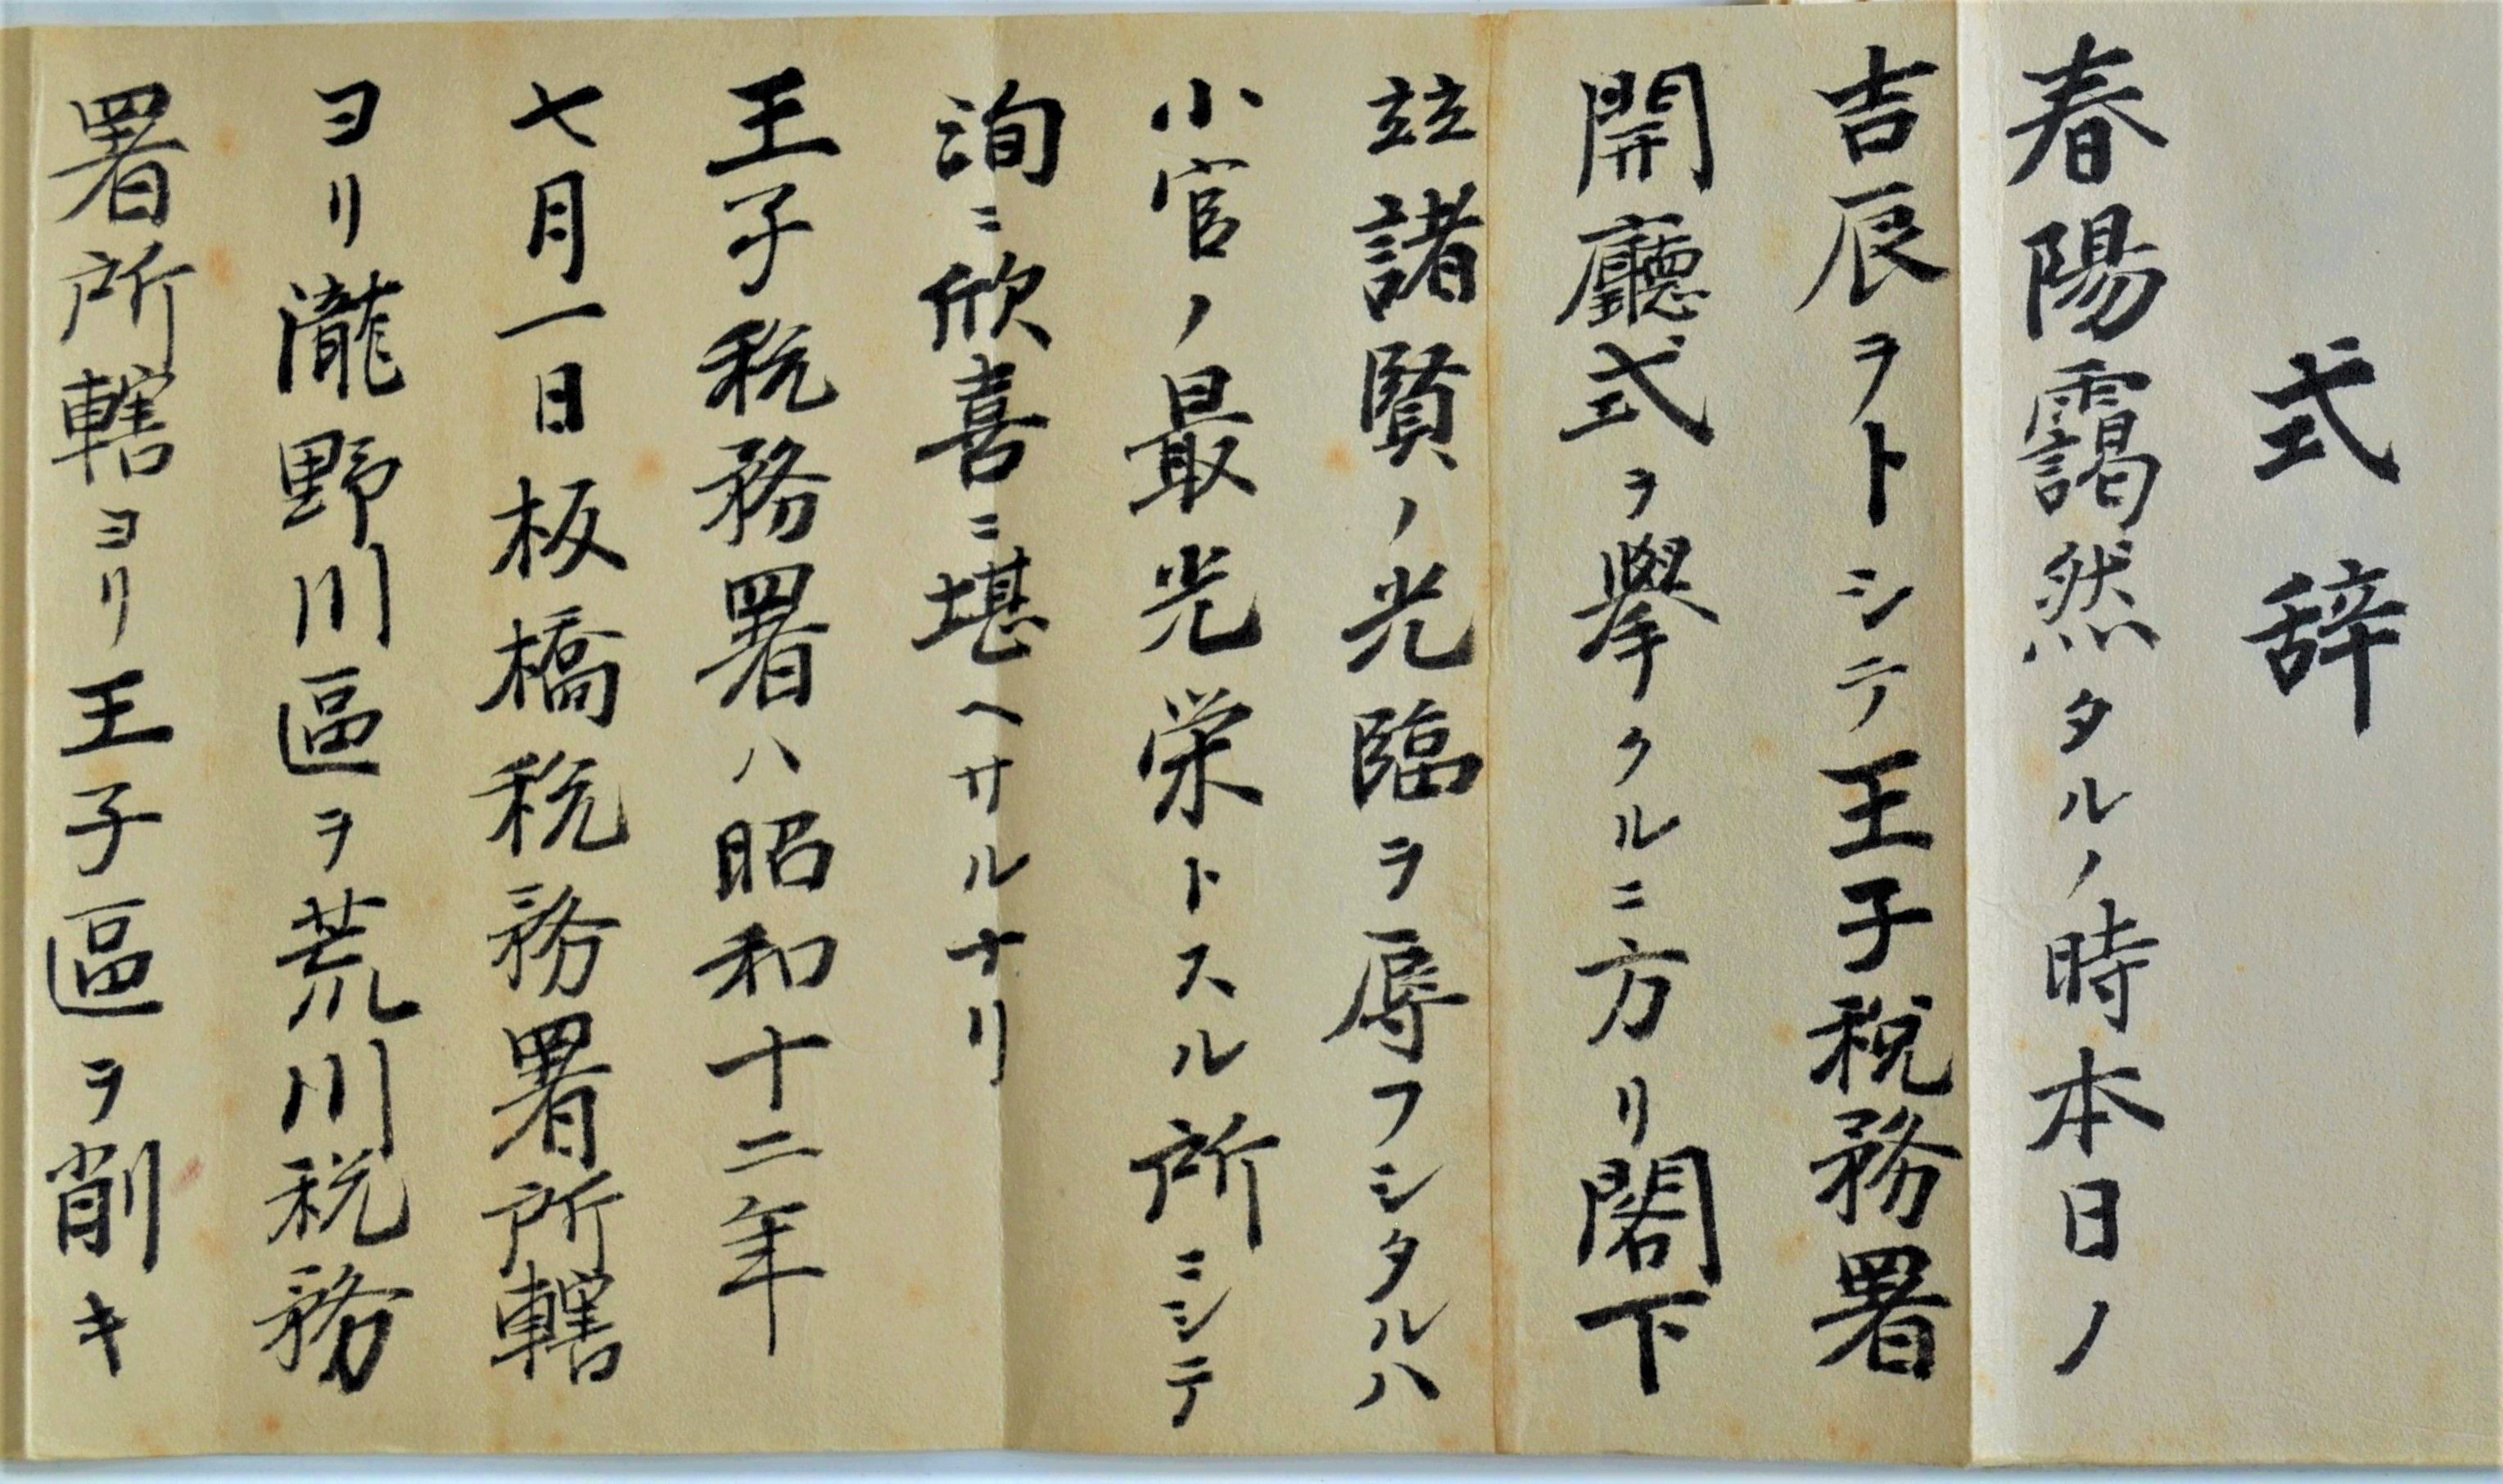 式辞
春陽靄然タルノ時本日ノ
吉辰ヲトシテ王子税務署
開廳式ヲ擧クルニ方リ閣下
竝諸賢ノ光臨ヲ辱フシタルハ
小官ノ最光栄トスル所ニシテ
洵ニ欣喜ニ堪ヘサルナリ
王子税務署ハ昭和十二年
七月一日板橋税務署所轄
ヨリ瀧野川區ヲ荒川税務
署所轄ヨリ王子區ヲ削キ